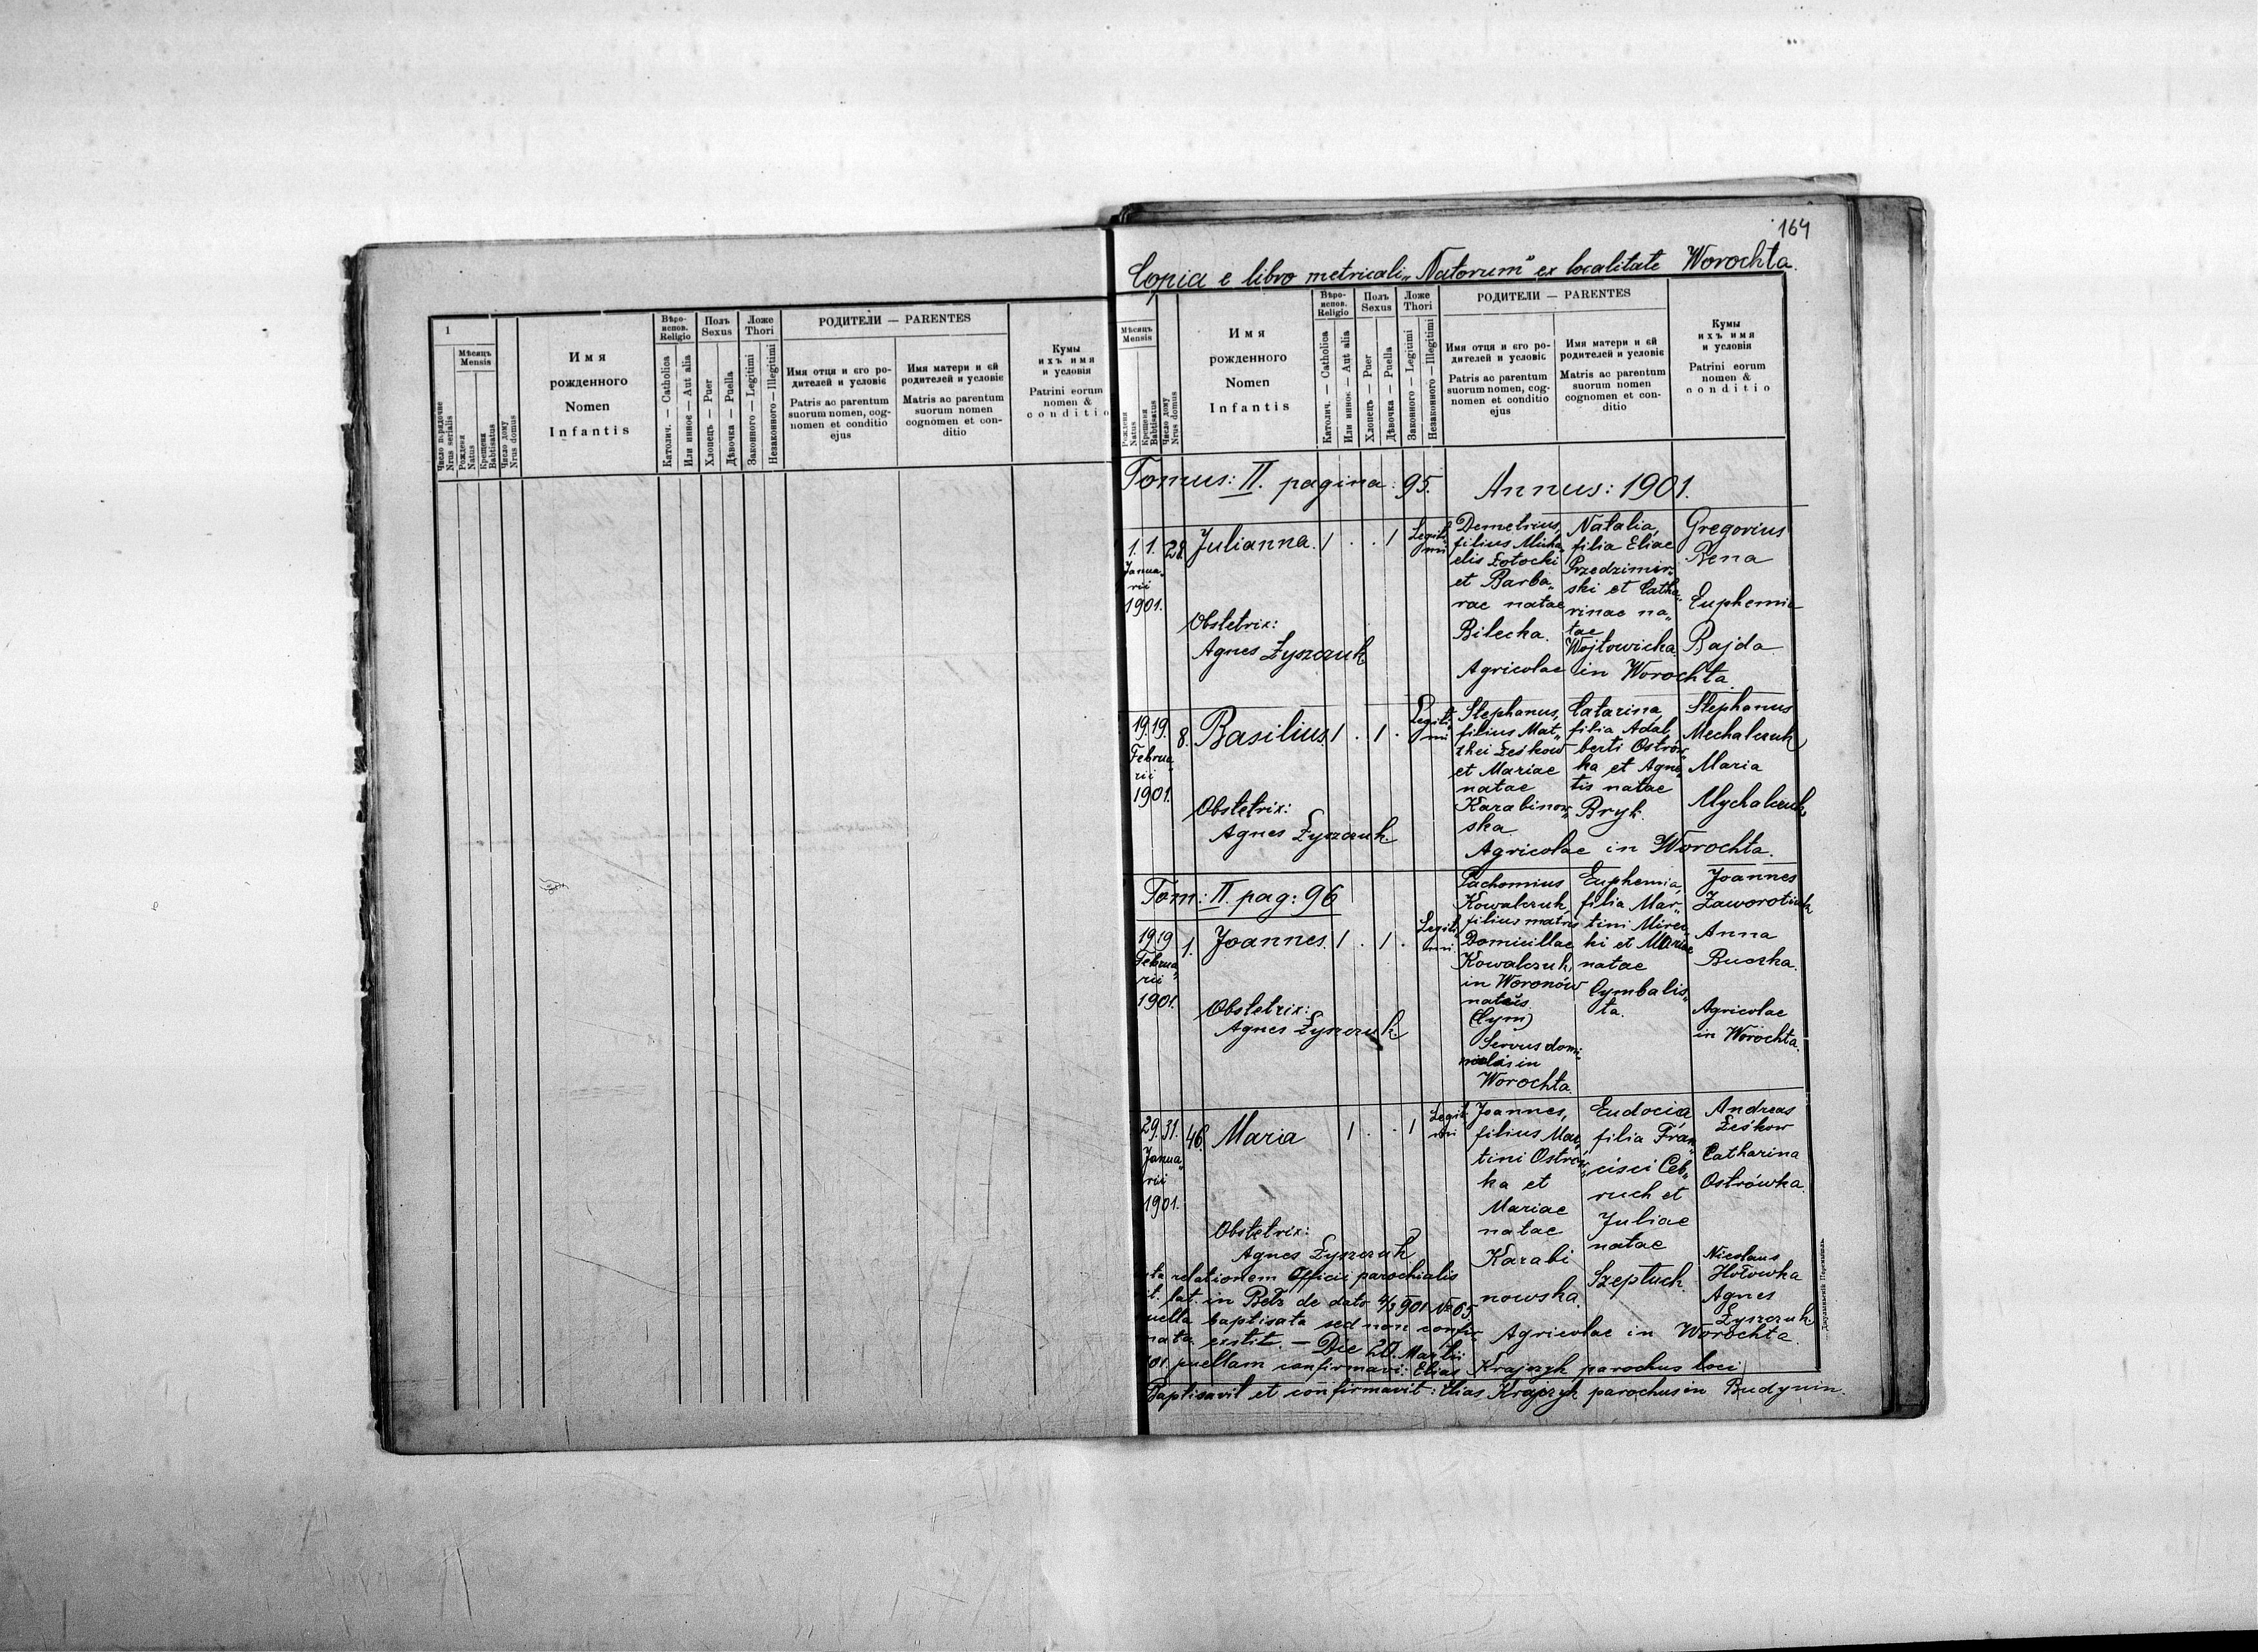 164
Copia e libro metricali „Natorum" ex localitate Worochta.
1
Число порядочне
Nrus serialis
Мѣсяць
Mensis
Рожденя
Natus
Крещеня
Babtisatus
Число дому
Nrus domus
Имя
рожденного
Nomen
Infantis
Вѣро-
испов.
Religio
Католич. — Catholica
Или инное — Aut alia
Полъ
Sexus
Хлопець — Puer
Дѣвочка — Puella
Ложе
Thori
Законного — Legitimi
Незаконного — Illegitimi
РОДИТЕЛИ — PARENTES
Имя отця и єго ро-
дителей и условіє
Patris ac parentum
suorum nomen, cog-
nomen et conditio
ejus
Имя матери и єй
родителей и условіє
Matris ac parentum
suorum nomen
cognomen et con-
ditio
Кумы
ихъ имя
и условія
Patrini eorum
nomen &
conditio
Мѣсяць
Mensis
Рожденя
Natus
Крещеня
Babtisatus
Число дому
Nrus domus
Имя
рожденного
Nomen
Infantis
Вѣро-
испов.
Religio
Католич. — Catholica
Или инное — Aut alia
Полъ
Sexus
Хлопець — Puer
Дѣвочка — Puella
Ложе
Thori
Законного — Legitimi
Незаконного — Illegitimi
РОДИТЕЛИ — PARENTES
Имя отця и єго ро-
дителей и условіє
Patris ac parentum
suorum nomen, cog-
nomen et conditio
ejus
Имя матери и єй
родителей и условіє
Matris ac parentum
suorum nomen
cognomen et con-
ditio
Кумы
ихъ имя
и условія
Patrini eorum
nomen &
conditio
Tomus: II. pagina: 95. Annus: 1901.
1. 1. 28.
Janua„
rii
1901.
Julianna. 1 . . 1
Legiti„
mi
Obstetrix:
Agnes Żyszczuk
Demetrius,
filius Micha„
elis Łotocki
et Barba„
rae natae
Bilecha.
Natalia,
filia Eliae
Przedzimir„
ski et Catha„
rinae na„
tae
Wojtowicka.
Agricolae in Worochta
Gregorius
Rena
Euphemia
Bajda
19. 19. 8.
Februa„
rii
1901.
Basilius. 1 . 1 .
Legiti„
mi
Obstetrix:
Agnes Żyszczuk.
Stephanus,
filius Mat„
thei Leśkow
et Mariae
natae
Karabinow„
ska
Catarina,
filia Adal„
berti Ostrów„
ka et Agne„
tis natae
Bryk.
Agricolae in Worochta.
Stephanus
Mechalczuk
Maria
Mychalczuk
Tom: II. pag: 96
19 19 1.
Februa„
rii
1901.
Joannes. 1 . 1 .
Legiti„
mi
Obstetrix:
Agnes Żyszczuk.
Pachomius
Kowalczuk
filius matris
Domicillae
Kowalczuk,
in Woronów
natus
(Cym)
Servus domi„
nicalis in
Worochta.
Euphemia,
filia Mar„
tini Mirec„
ki et Mariae
natae
Cymbalis„
ta.
Joannes
Zaworotiuk
Anna
Buczka.
Agricolae
in Worochta.
29. 31. 46.
Janua„
rii
1901.
Maria 1 . . 1
Legiti„
mi
Obstetrix:
Agnes Żyszczuk
Joannes,
filius Mar„
tini Ostrów„
ka et
Mariae
natae
Karabi
nowska.
Eudocia
filia Fran„
cisci Ceb„
ruch et
Juliae
natae
Szeptuch.
Agricolae in Worochta.
Andreas
Leśkow
Catharina
Ostrówka.
Nicolaus
Hołowka
Agnes
Żyszczuk
relationem Officii parochialis
lat. in Bełz de dato 4/3 901 № 65
baptisata sed non confir„
extit. — Die 20. Martii
puellam confirmavi: Elias Krajczyk parochus loci
Baptisavit et confirmavit: Elias Krajczyk parochus in Budynin.